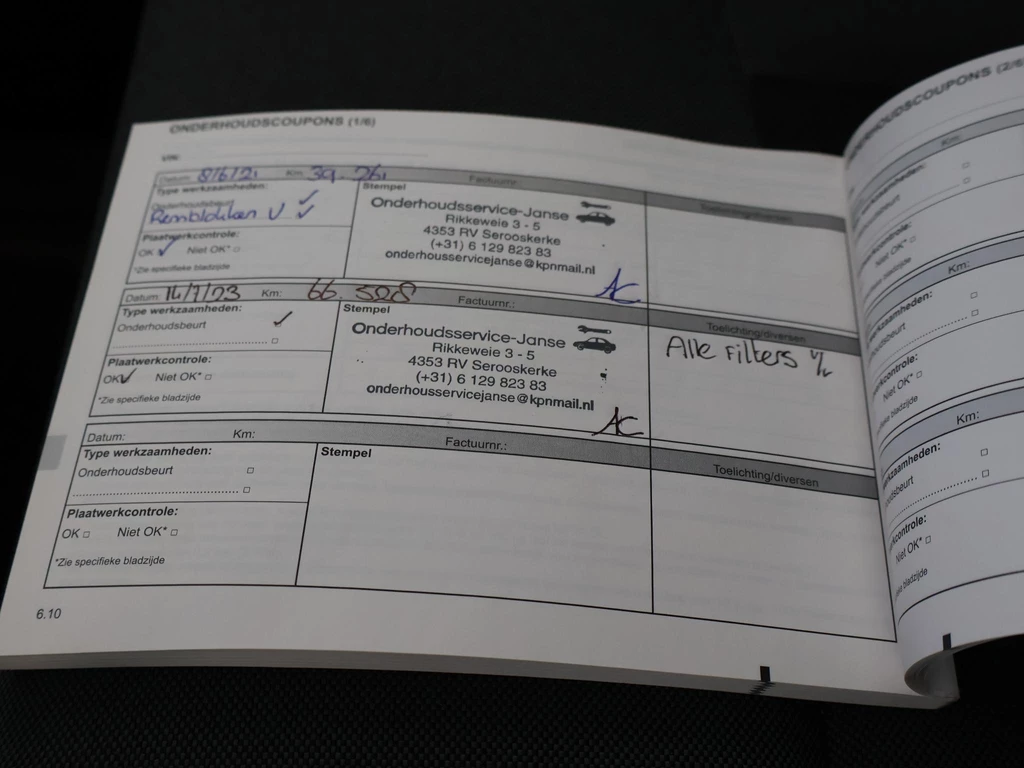 ONDERHOUDSCOUPONS (1/6)
VIN:
Datum: 8/6/21 Km: 39.261 Factuurnr.:
Type werkzaamheden:
Onderhoudsbeurt ✓
Remblokken V ✓
Plaatwerkcontrole:
OK ✓ Niet OK* □
*Zie specifieke bladzijde
Stempel
Onderhoudsservice-Janse
Rikkeweie 3 - 5
4353 RV Serooskerke
(+31) 6 129 823 83
onderhousservicejanse@kpnmail.nl
AC
Toelichting/diversen
Datum: 14/7/23 Km: 66 528 Factuurnr.:
Type werkzaamheden:
Onderhoudsbeurt ✓
........................................ □
Plaatwerkcontrole:
OK ✓ Niet OK* □
*Zie specifieke bladzijde
Stempel
Onderhoudsservice-Janse
Rikkeweie 3 - 5
4353 RV Serooskerke
(+31) 6 129 823 83
onderhousservicejanse@kpnmail.nl
AC
Toelichting/diversen
Alle Filters
Datum: Km: Factuurnr.:
Type werkzaamheden:
Onderhoudsbeurt □
........................................ □
Plaatwerkcontrole:
OK □ Niet OK* □
*Zie specifieke bladzijde
Stempel
Toelichting/diversen
6.10
ONDERHOUDSCOUPONS (2/6
Km:
werkzaamheden:
oudsbeurt □
.................... □
controle:
Niet OK* □
bladzijde
Km:
werkzaamheden:
oudsbeurt □
.................... □
kcontrole:
Niet OK* □
bladzijde
Km:
erkzaamheden:
oudsbeurt □
.................... □
rkcontrole:
Niet OK* □
ke bladzijde